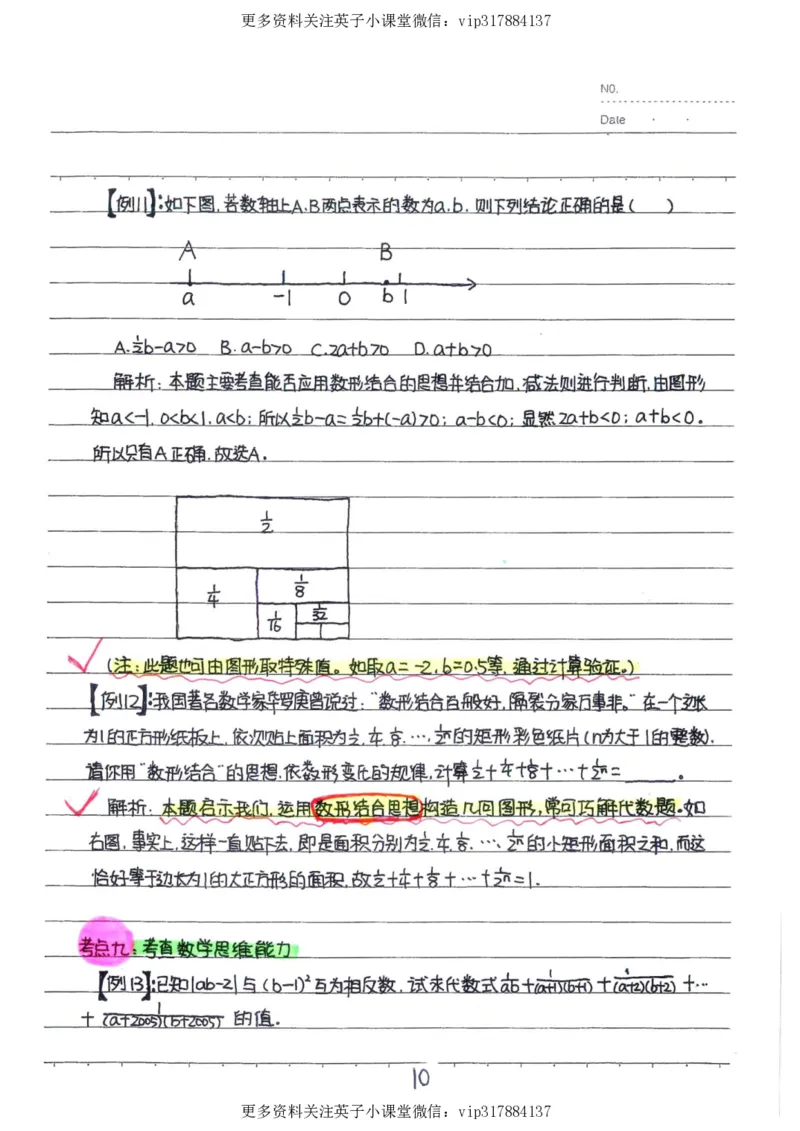 更多资料关注英子小课堂微信：vip317884137
NO.
Date
【例11】:如下图,若数轴上A、B两点表示的数为a、b,则下列结论正确的是(  )
A B
a -1 0 b 1
A.½b-a>0 B.a-b>0 C.2a+b>0 D.a+b>0
解析:本题主要考查能否应用数形结合的思想并结合加、减法则进行判断,由图形
知a<-1,0<b<1,a<b;所以½b-a=½b+(-a)>0;a-b<0;显然2a+b<0;a+b<0。
所以只有A正确,故选A。
1/2
1/4 1/8
1/16 1/32
(注:此题也可由图形取特殊值。如取a=-2,b=0.5等,通过计算验证。)
【例12】:我国著名数学家华罗庚曾说过:"数形结合百般好,隔裂分家万事非。"在一个边长
为1的正方形纸板上,依次贴上面积为1/2,1/4,1/8,…,1/2ⁿ的矩形彩色纸片(n为大于1的整数).
请你用"数形结合"的思想,依数形变化的规律,计算1/2+1/4+1/8+…+1/2ⁿ=____。
解析:本题启示我们,运用数形结合思想构造几何图形,常可巧解代数题。如
右图,事实上,这样一直贴下去,即是面积分别为1/2,1/4,1/8,…,1/2ⁿ的小矩形面积之和,而这
恰好等于边长为1的大正方形的面积,故1/2+1/4+1/8+…+1/2ⁿ=1.
考点九:考查数学思维能力
【例13】:已知|ab-2|与(b-1)²互为相反数,试求代数式1/ab+1/(a+1)(b+1)+1/(a+2)(b+2)+…
+1/(a+2005)(b+2005)的值.
10
更多资料关注英子小课堂微信：vip317884137